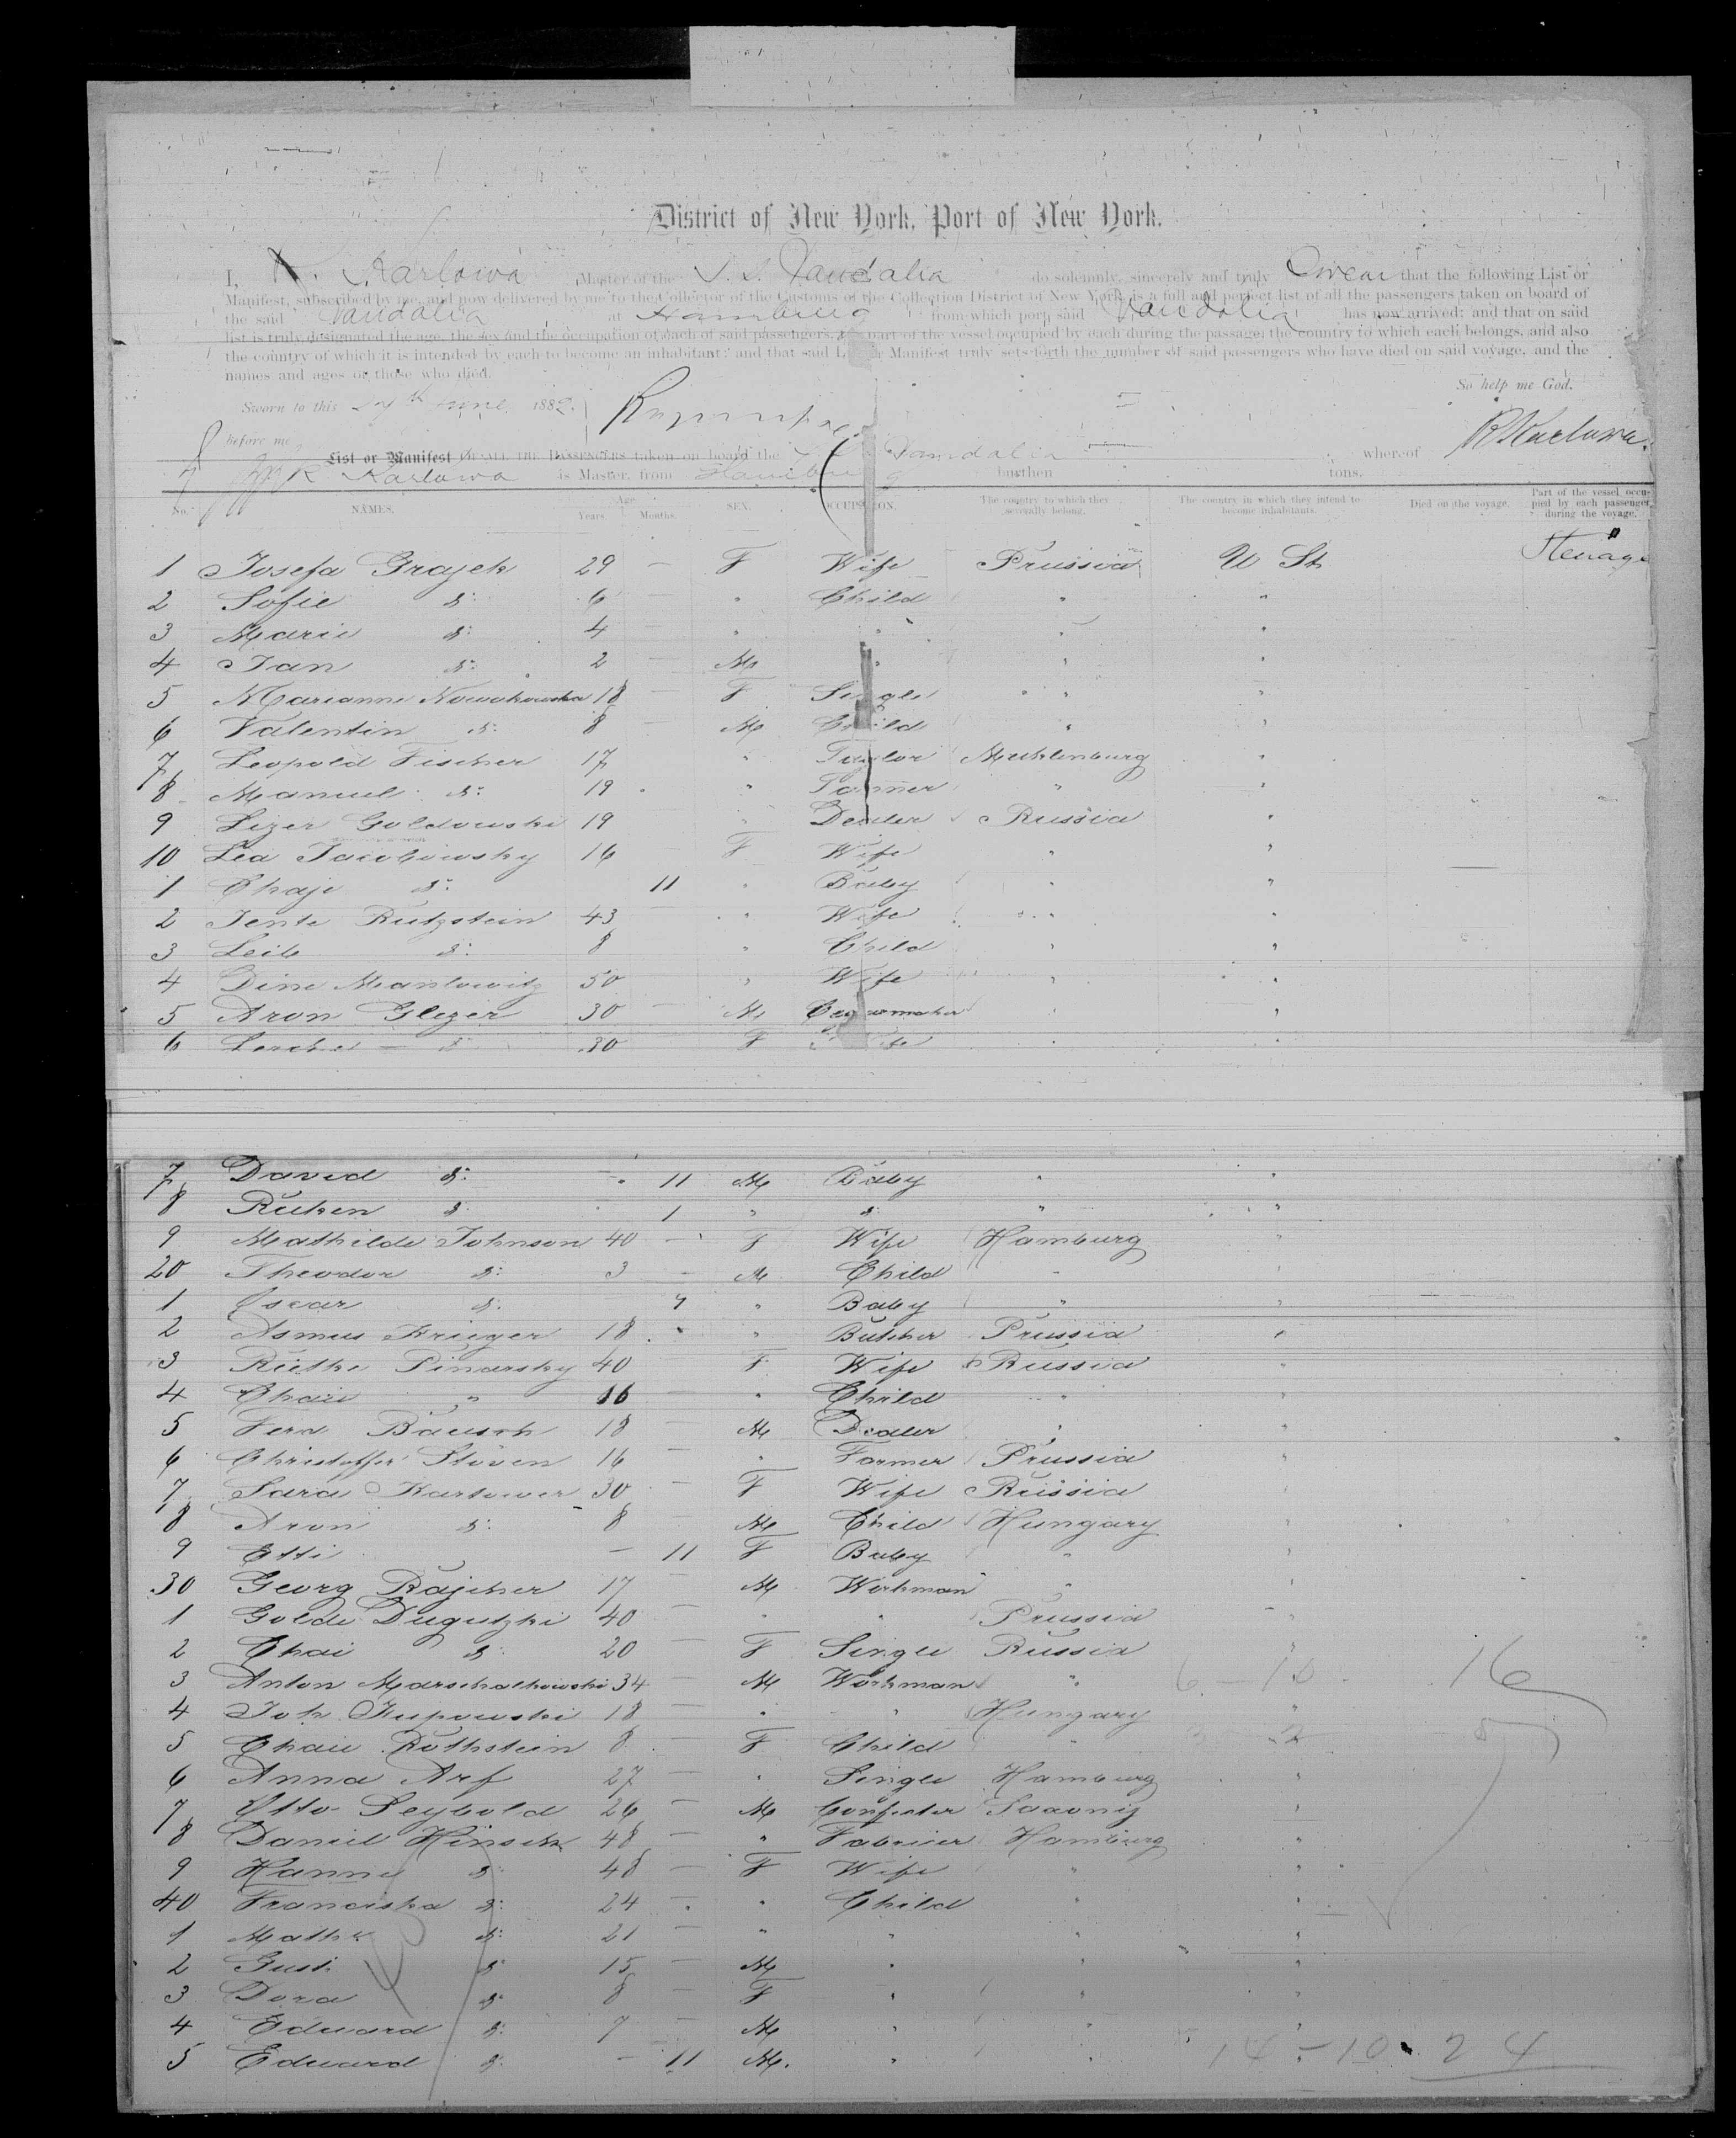 District of New York, Port of New York.
I, R. Karlowa Master of the S. S. Vandalia do solemnly, sincerely and truly Swear that the following List or
Manifest, subscribed by me, and now delivered by me to the Collector of the Customs of the Collection District of New York, is a full and perfect list of all the passengers taken on board of
the said Vandalia at Hamburg from which port said Vandalia has now arrived: and that on said
list is truly designated the age, the sex and the occupation of each of said passengers, the part of the vessel occupied by each during the passage, the country to which each belongs, and also
the country of which it is intended by each to become an inhabitant: and that said List or Manifest truly sets forth the number of said passengers who have died on said voyage, and the
names and ages of those who died.
So help me God.
Sworn to this June 1882.
R Karlowa.
Before me
List or Manifest OF ALL THE PASSENGERS taken on board the Vandalia whereof
R Karlowa is Master, from Hamburg burthen tons.
No. NAMES. Age Years Months. SEX. OCCUPATION. The country to which they severally belong. The country in which they intend to become inhabitants. Died on the voyage. Part of the vessel occupied by each passenger during the voyage.
1 Josefa Grajek 29 — F Wife Prussia U St Steerage
2 Sofie d: 6 — " Child " "
3 Marie d: 4 — " " " "
4 Jan d: 2 — M " " "
5 Marianne Nowakowska 18 — F Single " "
6 Valentin d: 8 — M Child " "
7 Leopold Fischer 17 " Taylor Mecklenburg "
8 Manuel d: 19 " Tanner " "
9 Lezer Goldowski 19 " Dealer Russia "
10 Lea Jacobowsky 16 F Wife " "
1 Chaje d: 11 " Baby " "
2 Jente Rutzstein 43 " Wife " "
3 Leib d: 8 " Child " "
4 Dine 50 " Wife " "
5 Aron Glezer 30 — M Cigarmaker " "
6 d: 30 F Wife " "
7 David d: — 11 M Baby " "
8 Ruben d: 1 " d: " "
9 Mathilde Johnson 40 — F Wife Hamburg "
20 Theodor d: 3 — M Child " "
1 Oscar d: 7 " Baby " "
2 Asmus Krieger 18 " Butcher Prussia "
3 Pinarsky 40 F Wife Russia "
4 Chaie " 16 — " Child " "
5 Ferd Bausch 18 — M Dealer " "
6 Christoffer Stüven 16 — " Farmer Prussia "
7 Sara 30 F Wife Russia "
8 Aron d: 8 — M Child Hungary "
9 Etti — 11 F Baby " "
30 Georg 17 — M Workman " "
1 Golde Dugutzki 40 — " " Prussia "
2 Chai d: 20 — F Single Russia "
3 Anton Marschalkowski 34 — M Workman " 6 — 10 16
4 Joh. 18 — " " Hungary "
5 Chaie Rothstein 8 — F Child "
6 Anna Arf 27 — " Single Hamburg "
7 Otto Seybold 26 — M Saxony "
8 Daniel Hinsch 48 — " Hamburg "
9 Hanne d: 48 — F Wife " "
40 Franciska d: 24 — " Child " "
1 d: 21 — " " " "
2 Gust. d: 15 — M " " "
3 Dora d: 8 — F " " "
4 Eduard d: 7 — M " " "
5 Eduard d: — 11 M. " " 14 - 10 . 24